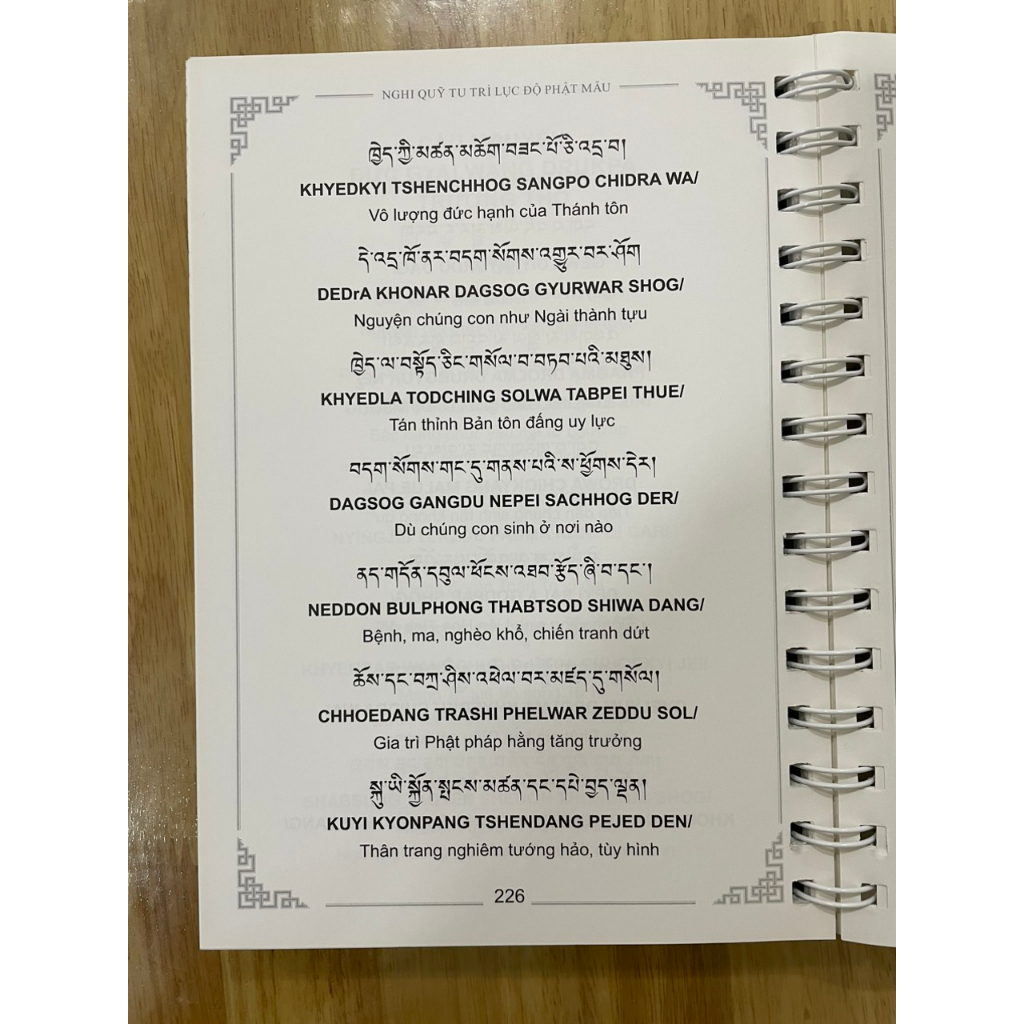 NGHI QUỸ TU TRÌ LỤC ĐỘ PHẬT MẪU
ཁྱེད་ཀྱི་མཚན་མཆོག་བཟང་པོ་ཅི་འདྲ་བ།
KHYEDKYI TSHENCHHOG SANGPO CHIDRA WA/
Vô lượng đức hạnh của Thánh tôn
དེ་འདྲ་ཁོ་ནར་བདག་སོགས་འགྱུར་བར་ཤོག
DEDrA KHONAR DAGSOG GYURWAR SHOG/
Nguyện chúng con như Ngài thành tựu
ཁྱེད་ལ་བསྟོད་ཅིང་གསོལ་བ་བཏབ་པའི་མཐུས།
KHYEDLA TODCHING SOLWA TABPEI THUE/
Tán thỉnh Bản tôn đấng uy lực
བདག་སོགས་གང་དུ་གནས་པའི་ས་ཕྱོགས་དེར།
DAGSOG GANGDU NEPEI SACHHOG DER/
Dù chúng con sinh ở nơi nào
ནད་གདོན་དབུལ་ཕོངས་འཐབ་རྩོད་ཞི་བ་དང་།
NEDDON BULPHONG THABTSOD SHIWA DANG/
Bệnh, ma, nghèo khổ, chiến tranh dứt
ཆོས་དང་བཀྲ་ཤིས་འཕེལ་བར་མཛད་དུ་གསོལ།
CHHOEDANG TRASHI PHELWAR ZEDDU SOL/
Gia trì Phật pháp hằng tăng trưởng
སྐུ་ཡི་སྐྱོན་སྤངས་མཚན་དང་དཔེ་བྱད་ལྡན།
KUYI KYONPANG TSHENDANG PEJED DEN/
Thân trang nghiêm tướng hảo, tùy hình
226